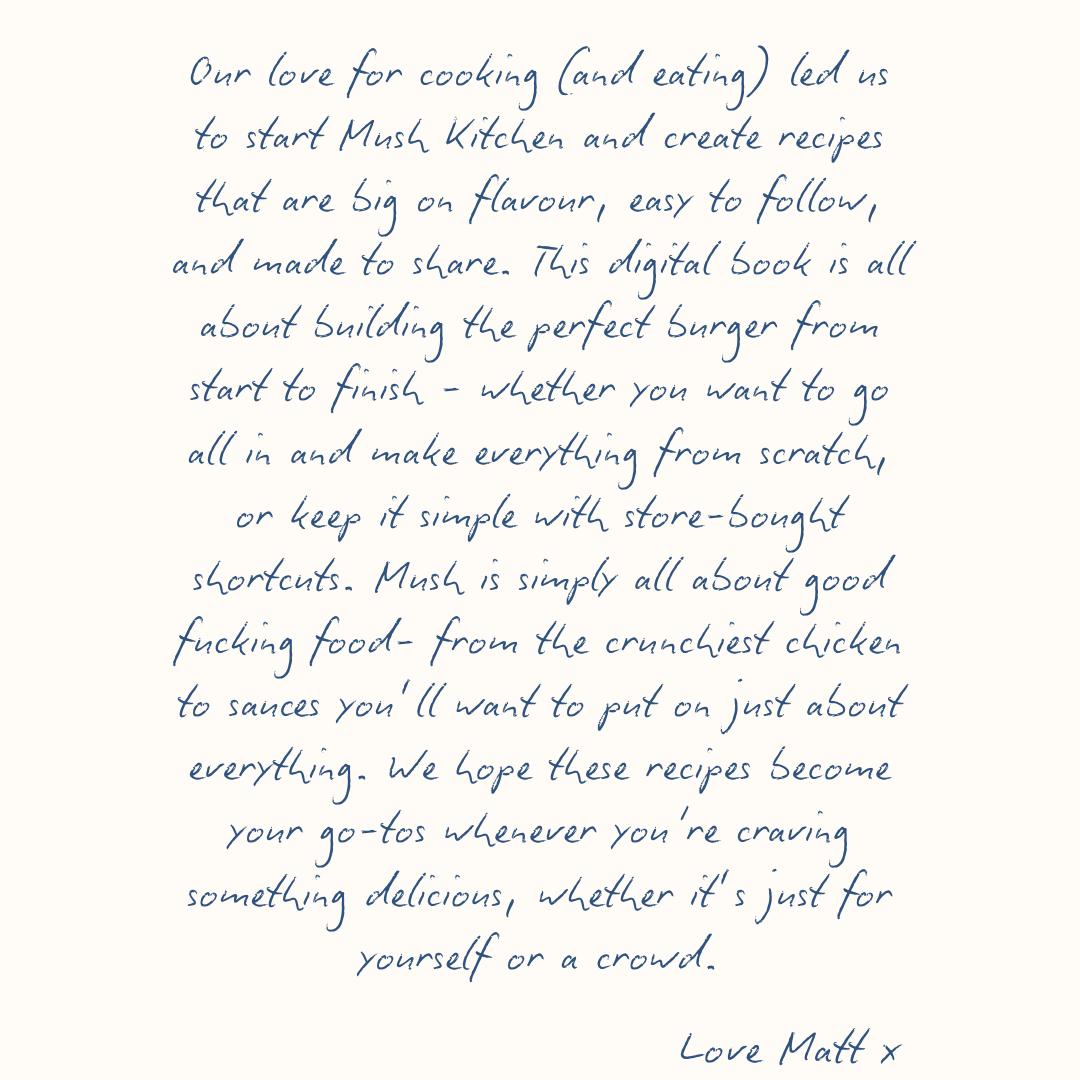 Our love for cooking (and eating) led us
to start Mush Kitchen and create recipes
that are big on flavour, easy to follow,
and made to share. This digital book is all
about building the perfect burger from
start to finish - whether you want to go
all in and make everything from scratch,
or keep it simple with store-bought
shortcuts. Mush is simply all about good
fucking food- from the crunchiest chicken
to sauces you'll want to put on just about
everything. We hope these recipes become
your go-tos whenever you're craving
something delicious, whether it's just for
yourself or a crowd.
Love Matt x